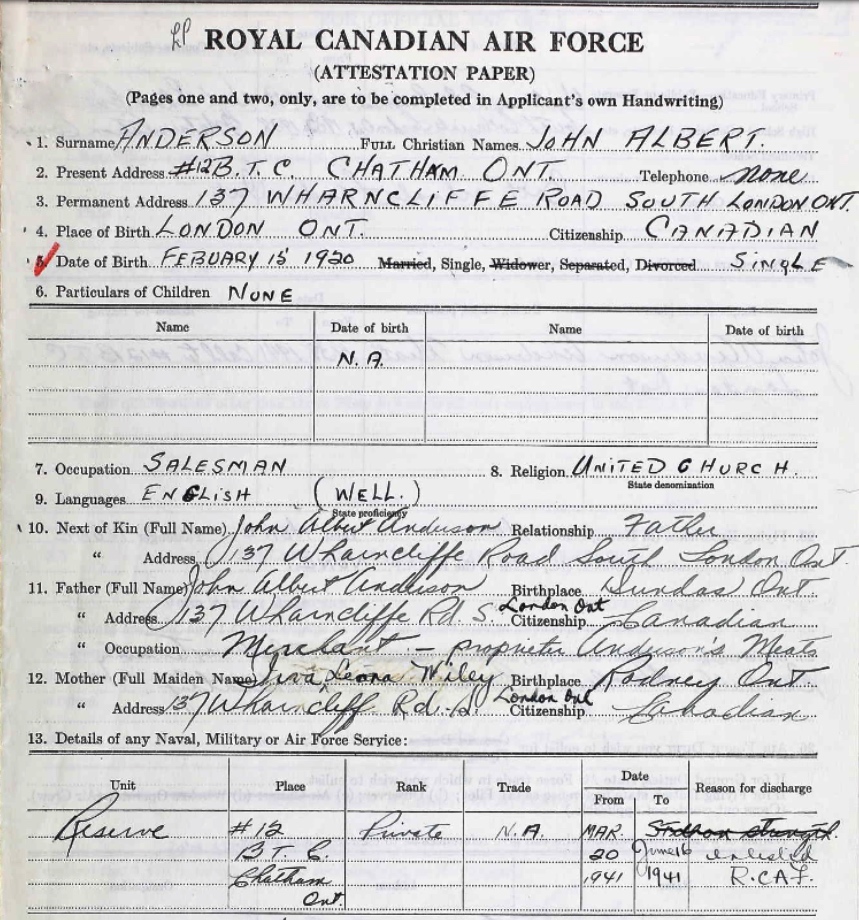 LP
ROYAL CANADIAN AIR FORCE
(ATTESTATION PAPER)
(Pages one and two, only, are to be completed in Applicant's own Handwriting)
1. Surname ANDERSON FULL Christian Names JOHN ALBERT.
2. Present Address #12 B.T.C. CHATHAM ONT. Telephone none
3. Permanent Address 137 WHARNCLIFFE ROAD SOUTH LONDON ONT.
4. Place of Birth LONDON ONT. Citizenship CANADIAN
5. Date of Birth FEBUARY 15 1920 Married, Single, Widower, Separated, Divorced SINGLE
6. Particulars of Children NONE
Name Date of birth Name Date of birth
N.A.
7. Occupation SALESMAN 8. Religion UNITED CHURCH.
State denomination
9. Languages ENGLISH (WELL.)
State proficiency
10. Next of Kin (Full Name) John Albert Anderson Relationship Father
" Address 137 Wharncliffe Road South London Ont
11. Father (Full Name) John Albert Anderson Birthplace Dundas Ont
" Address 137 Wharncliffe Rd S. London Ont Citizenship Canadian
" Occupation Merchant – proprietor Anderson's Meats
12. Mother (Full Maiden Name) Leona Wiley Birthplace Rodney Ont
" Address 137 Wharncliff Rd. S. London Ont Citizenship Canadian
13. Details of any Naval, Military or Air Force Service:
Unit Place Rank Trade Date Reason for discharge
From To
Reserve #12 Private N.A. MAR. strength.
B.T.C. 20 June 16 enlisted
Chatham 1941 1941 R.C.A.F.
Ont.